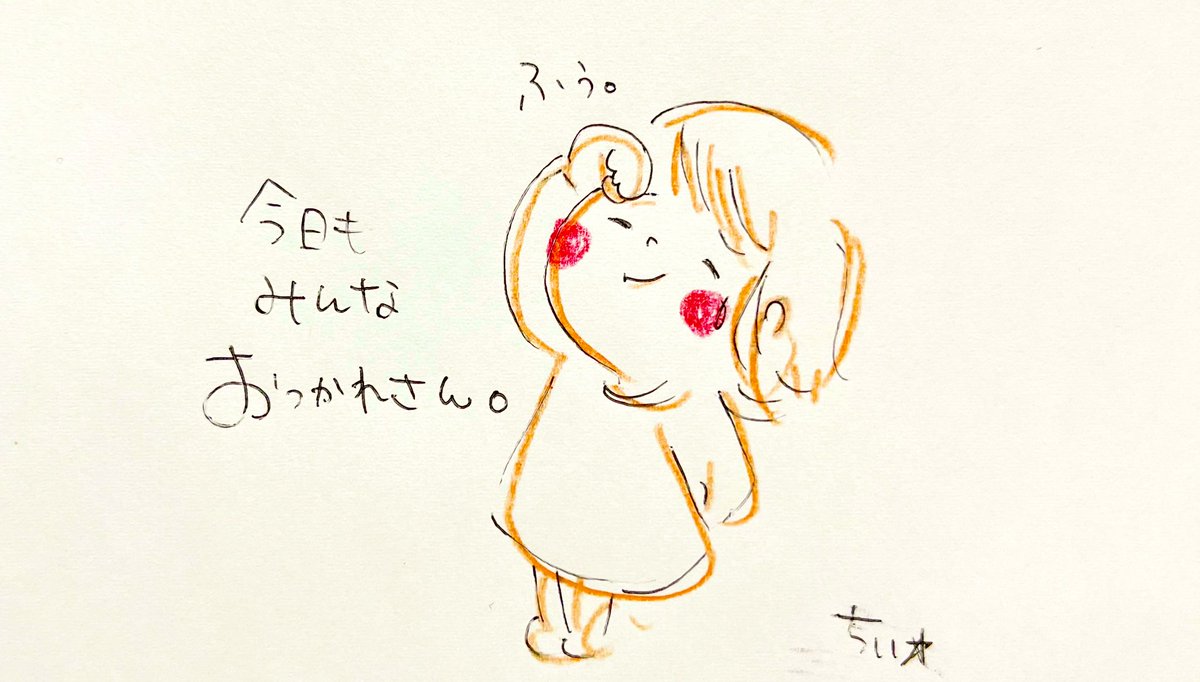 ふぅ。
今日も
みんな
おつかれさん。
ちい☆